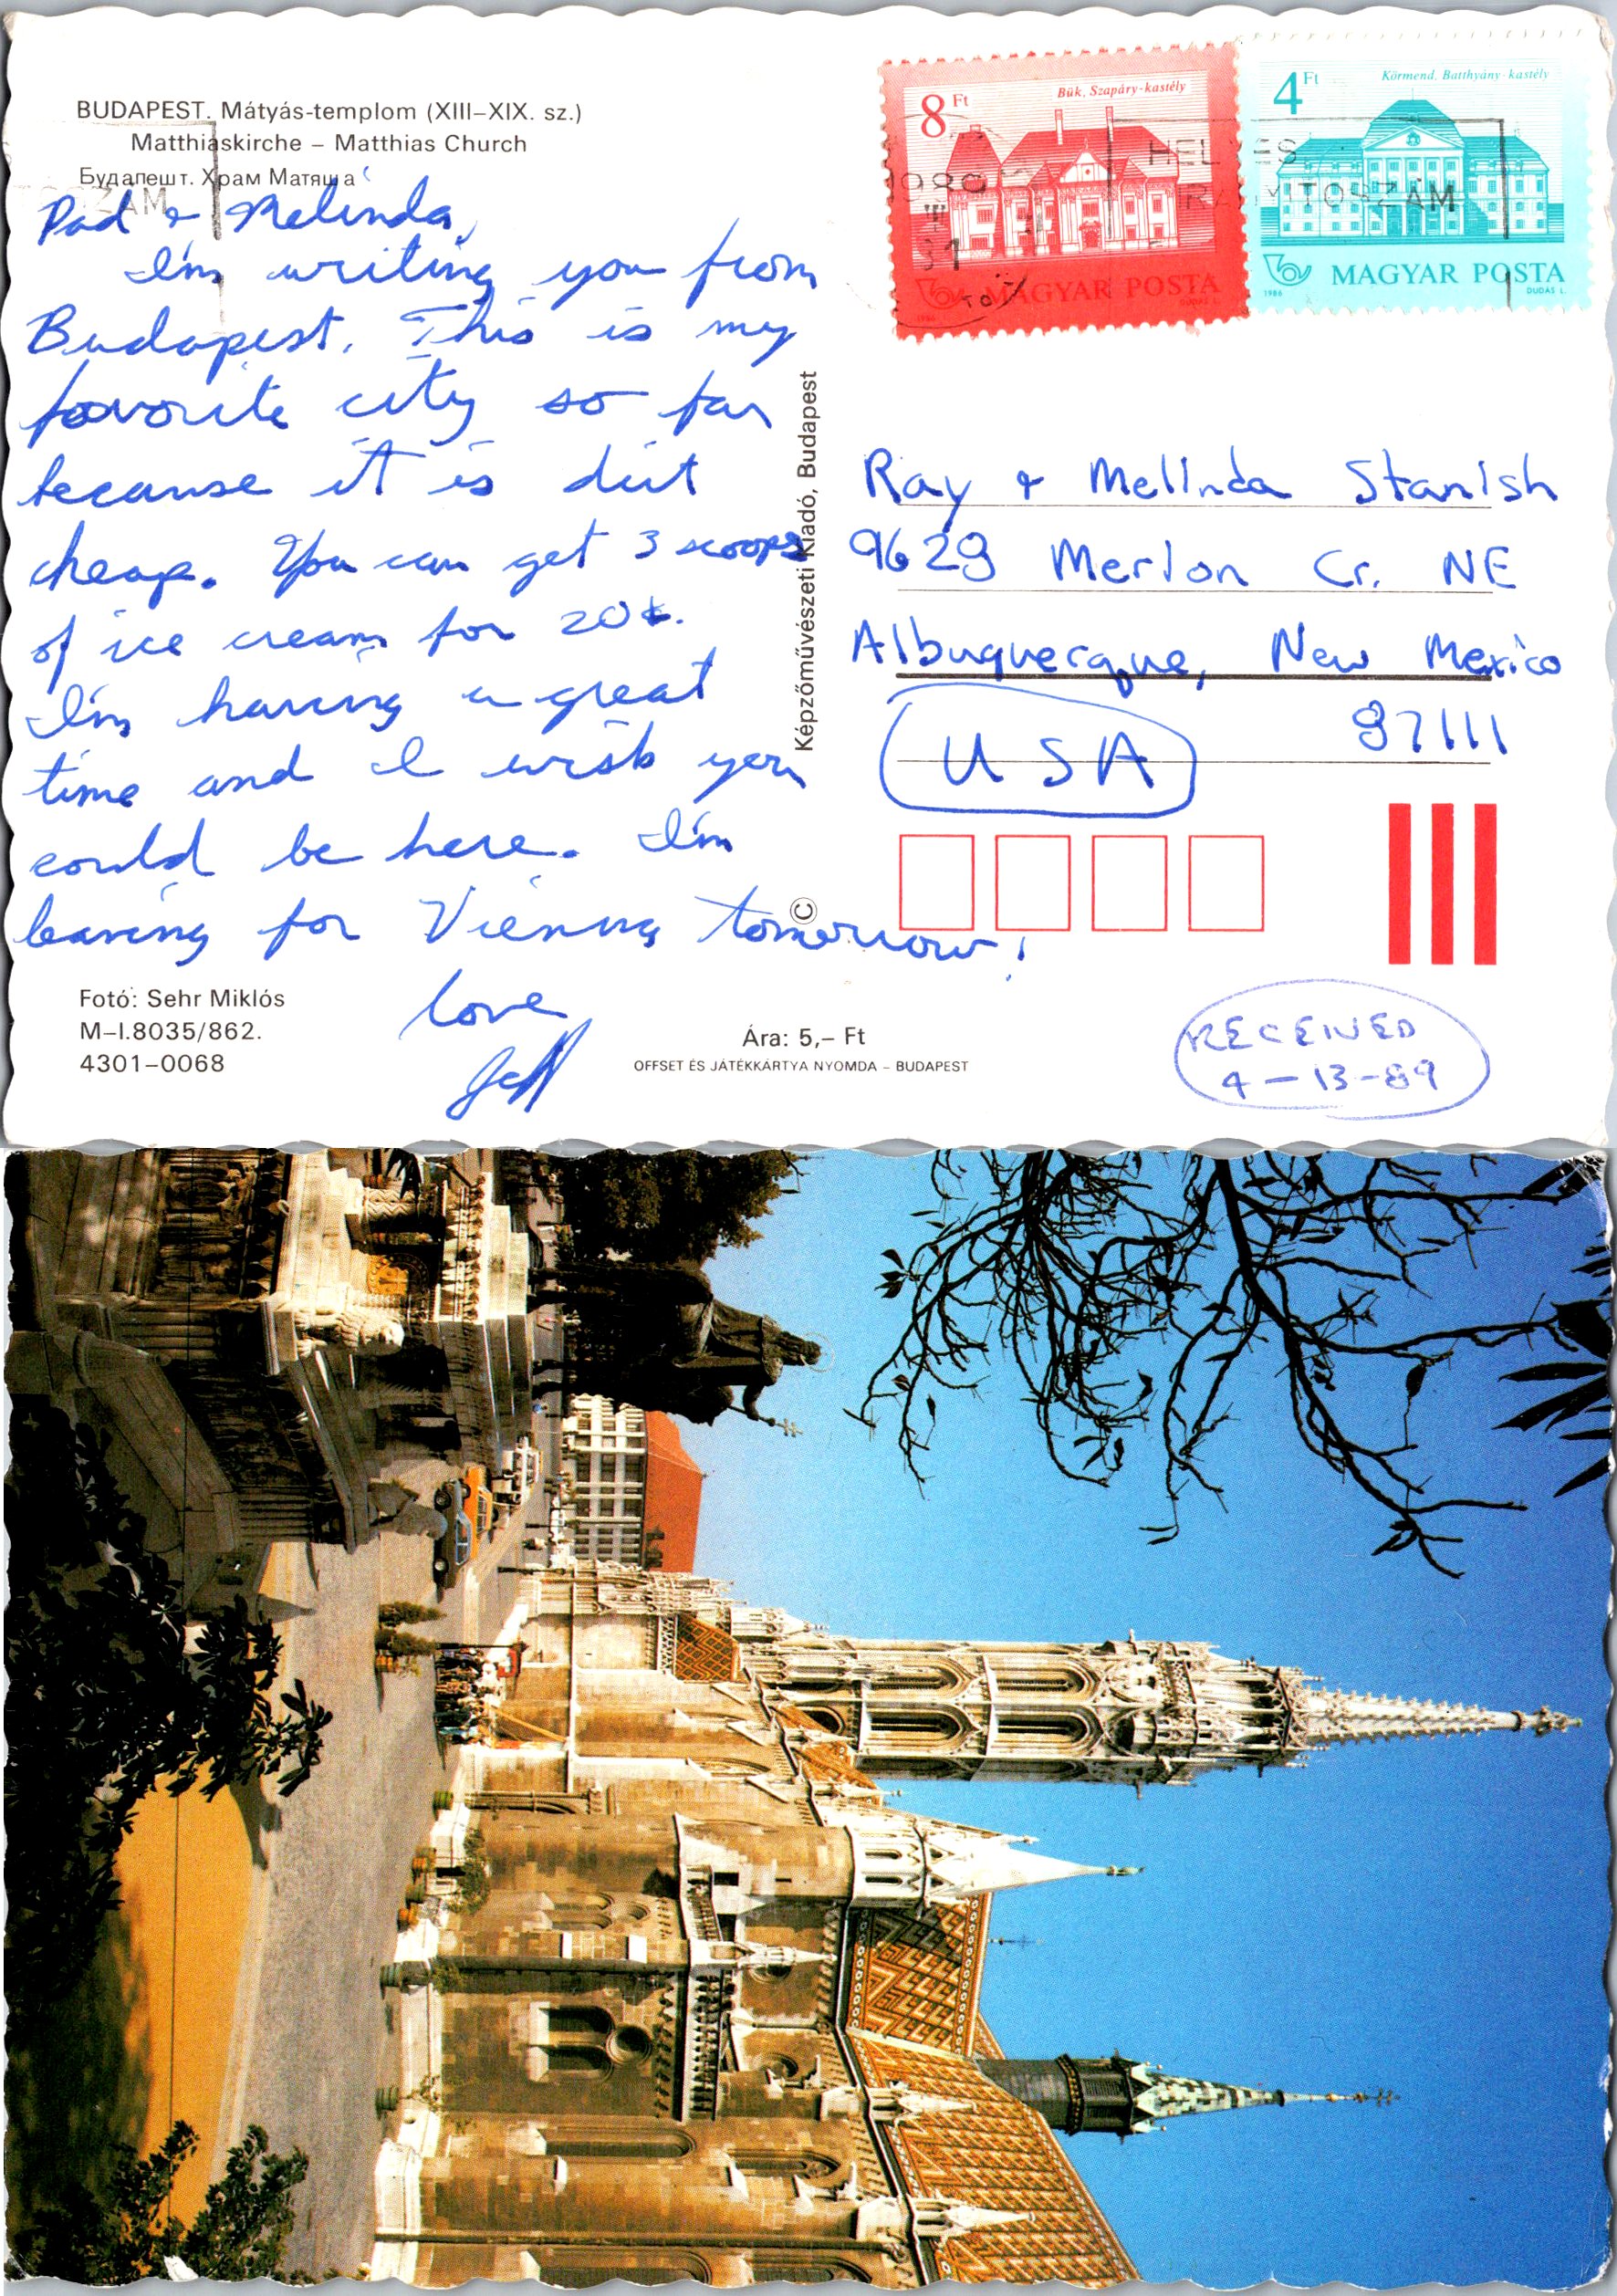 BUDAPEST. Mátyás-templom (XIII–XIX. sz.)
Matthiaskirche – Matthias Church
Будапешт. Храм Матяша
Dad & Melinda,
I'm writing you from
Budapest. This is my
favorite city so far
because it is dirt
cheap. You can get 3 scoops
of ice cream for 20¢.
I'm having a great
time and I wish you
could be here. I'm
leaving for Vienna tomorrow!
Love
Jeff
Fotó: Sehr Miklós
M–I.8035/862.
4301–0068
Ára: 5,– Ft
OFFSET ÉS JÁTÉKKÁRTYA NYOMDA – BUDAPEST
Képzőművészeti Kiadó, Budapest
©
8 Ft
Bük, Szapáry-kastély
MAGYAR POSTA
1986
DUDÁS L.
4 Ft
Körmend. Batthyány-kastély
MAGYAR POSTA
1986
DUDÁS L.
1989
31
HELYES
IRÁNYÍTÓSZÁM
SZÁM
Ray & Melinda Stanish
9629 Merlon Cr. NE
Albuquerque, New Mexico
87111
USA
RECEIVED
4-13-89